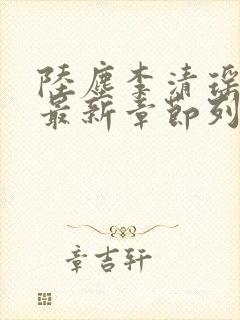 陆尘李清瑶
最新章节列
章吉轩